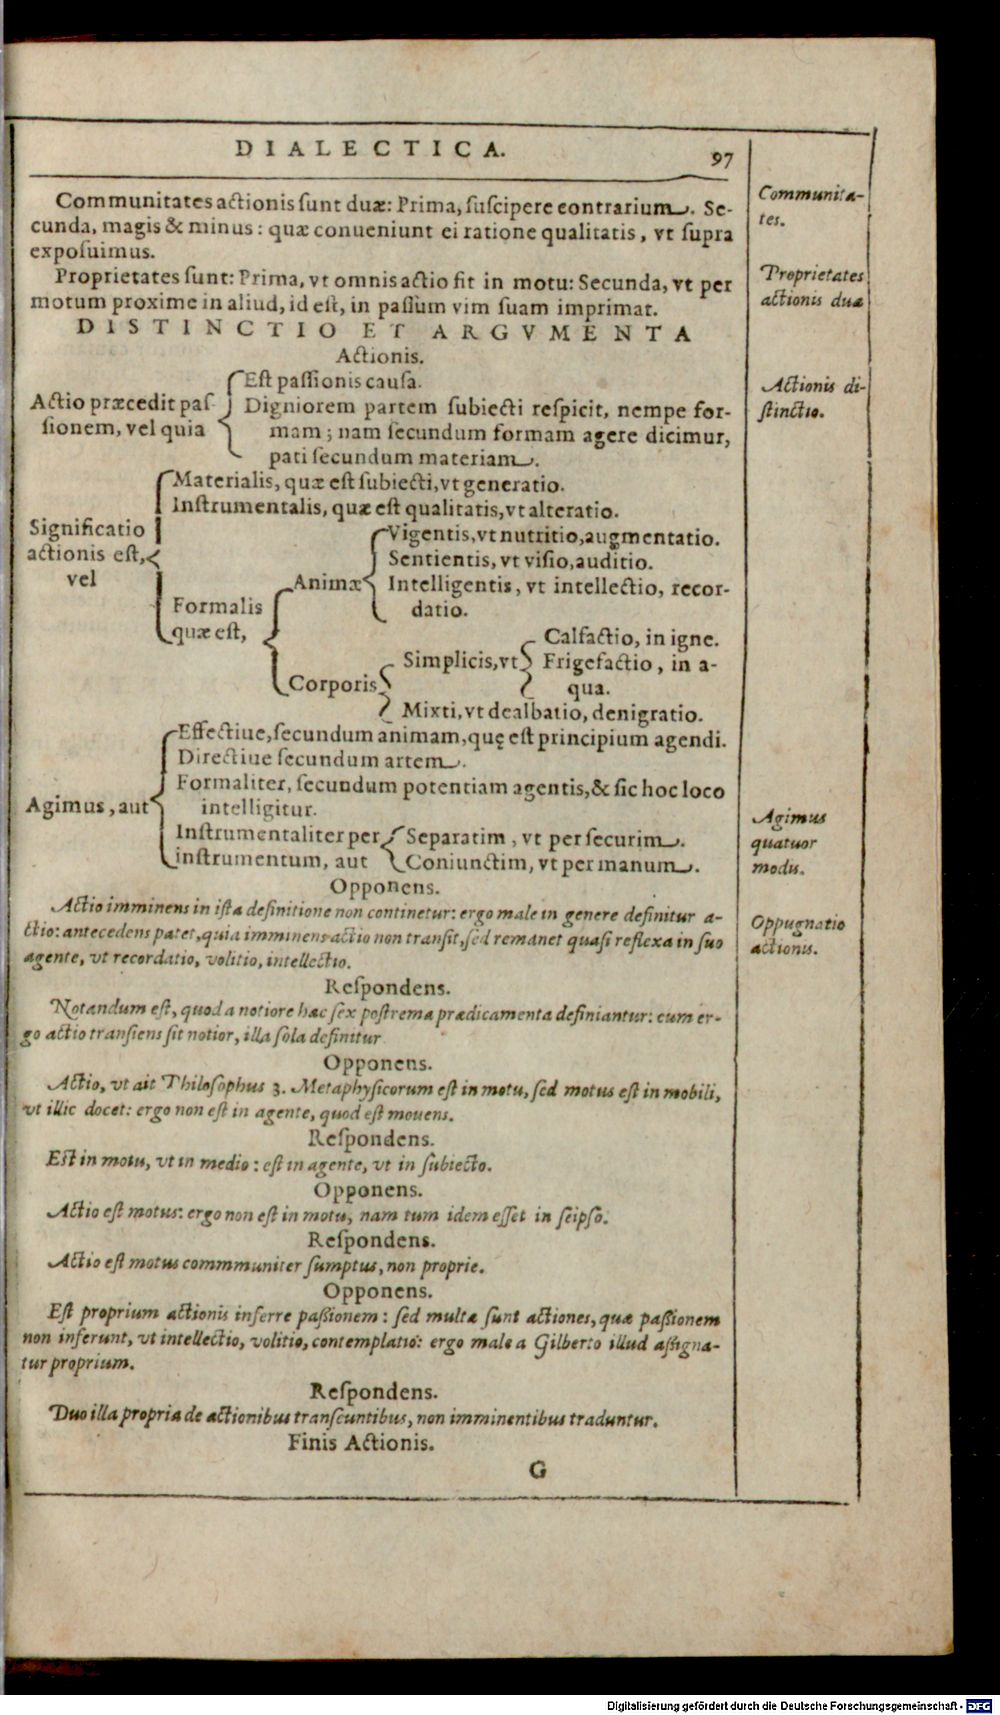 DIALECTICA.
97
Communitates actionis sunt duæ: Prima, suscipere contrarium. Se-
cunda, magis & minus: quæ conueniunt ei ratione qualitatis, vt supra
exposuimus.
Communita-
tes.
Proprietates sunt: Prima, vt omnis actio fit in motu: Secunda, vt per
motum proxime in aliud, id est, in passum vim suam imprimat.
Proprietates
actionis duæ
DISTINCTIO ET ARGVMENTA
Actionis.
Actio præcedit pas
sionem, vel quia
Est passionis causa.
Digniorem partem subiecti respicit, nempe for-
mam; nam secundum formam agere dicimur,
pati secundum materiam.
Actionis di-
stinctio.
Significatio
actionis est,
vel
Materialis, quæ est subiecti, vt generatio.
Instrumentalis, quæ est qualitatis, vt alteratio.
Formalis
quæ est,
Animæ
Vigentis, vt nutritio, augmentatio.
Sentientis, vt visio, auditio.
Intelligentis, vt intellectio, recor-
datio.
Corporis
Simplicis, vt
Calfactio, in igne.
Frigefactio, in a-
qua.
Mixti, vt dealbatio, denigratio.
Agimus, aut
Effectiue, secundum animam, quę est principium agendi.
Directiue secundum artem.
Formaliter, secundum potentiam agentis, & sic hoc loco
intelligitur.
Instrumentaliter per
instrumentum, aut
Separatim, vt per securim.
Coniunctim, vt per manum.
Agimus
quatuor
modis.
Opponens.
Actio imminens in ista definitione non continetur: ergo male in genere definitur a-
ctio: antecedens patet, quia imminens actio non transit, sed remanet quasi reflexa in suo
agente, vt recordatio, volitio, intellectio.
Oppugnatio
actionis.
Respondens.
Notandum est, quod a notiore hæc sex postrema prædicamenta definiantur: cum er-
go actio transiens sit notior, illa sola definitur
Opponens.
Actio, vt ait Philosophus 3. Metaphysicorum est in motu, sed motus est in mobili,
vt illic docet: ergo non est in agente, quod est mouens.
Respondens.
Est in motu, vt in medio: est in agente, vt in subiecto.
Opponens.
Actio est motus: ergo non est in motu, nam tum idem esset in seipso.
Respondens.
Actio est motus commmuniter sumptus, non proprie.
Opponens.
Est proprium actionis inferre passionem: sed multæ sunt actiones, quæ passionem
non inferunt, vt intellectio, volitio, contemplatio: ergo male a Gilberto illud assigna-
tur proprium.
Respondens.
Duo illa propria de actionibus transeuntibus, non imminentibus traduntur.
Finis Actionis.
G
Digitalisierung gefördert durch die Deutsche Forschungsgemeinschaft - DFG